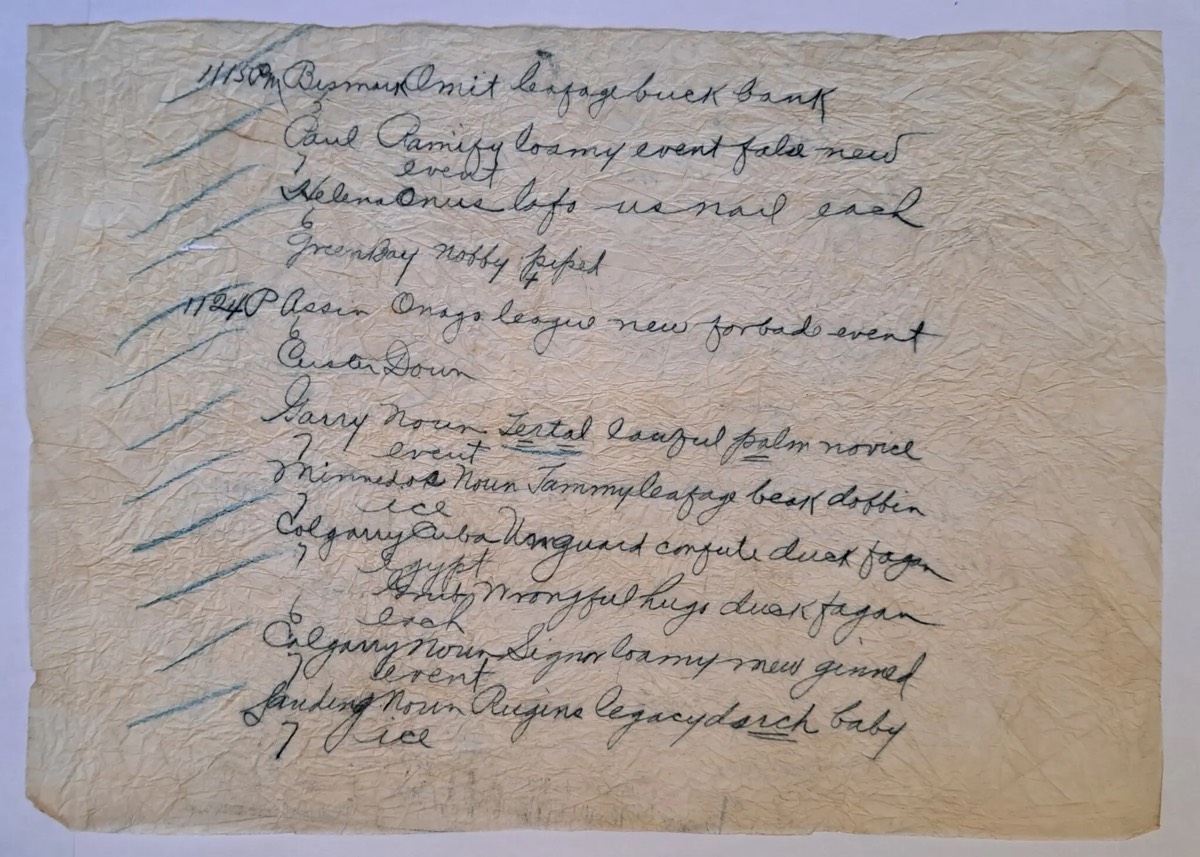 1113Pm Bismark Omit leafage buck bank
Paul Ramify loamy event false new
7 event
Helena Onus lofo us nail each
6
Greenbay nobby piped
1124P Assin Onago league new forbade event
6
Custer Down
Garry Noun Tertal lawful palm novice
7 event
Minnedos Noun Jammy leafage beak dobbin
7 ice
Calgarry Cuba Unguard confute duck fagan
7 Egypt
Grub Wrongful hugo duck fagan
6 each
Calgarry Noun Signor loamy mew ginned
7 event
Landing Noun Rugins legacy dsrch baby
7 ice